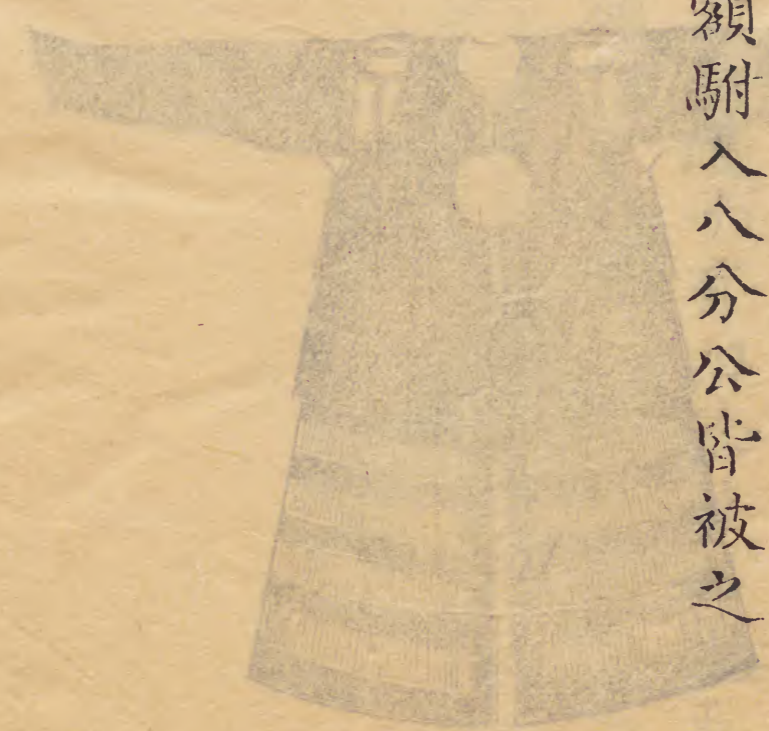 額駙入八分公皆被之